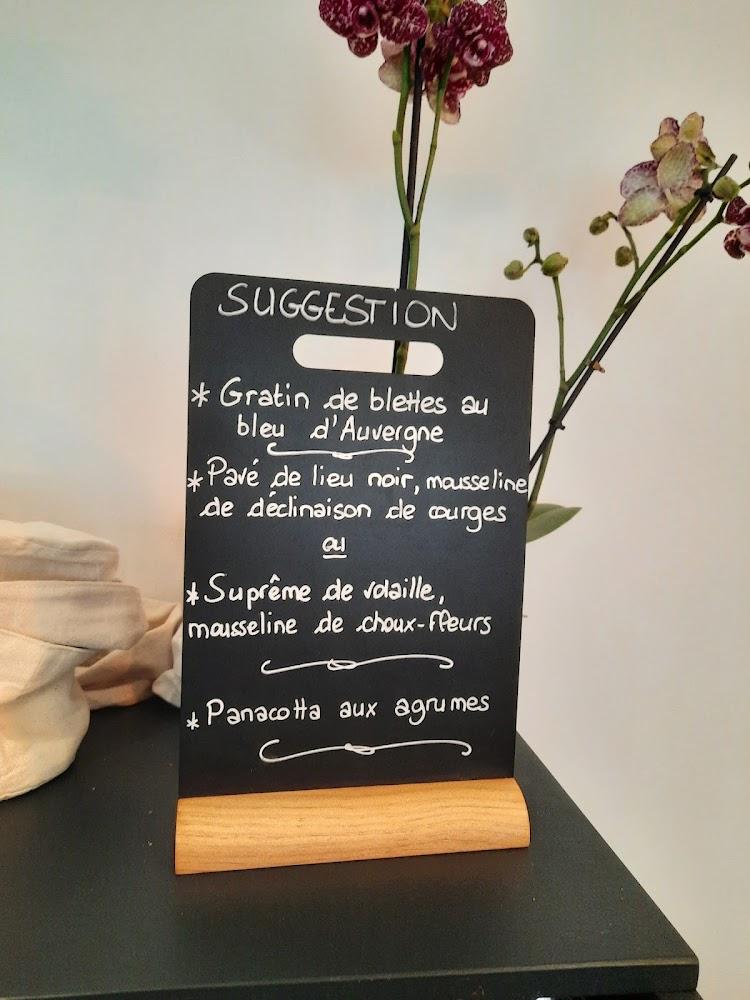 SUGGESTION
* Gratin de blettes au
bleu d'Auvergne
* Pavé de lieu noir, mousseline
de déclinaison de courges
ou
* Suprême de volaille,
mousseline de choux-fleurs
* Panacotta aux agrumes